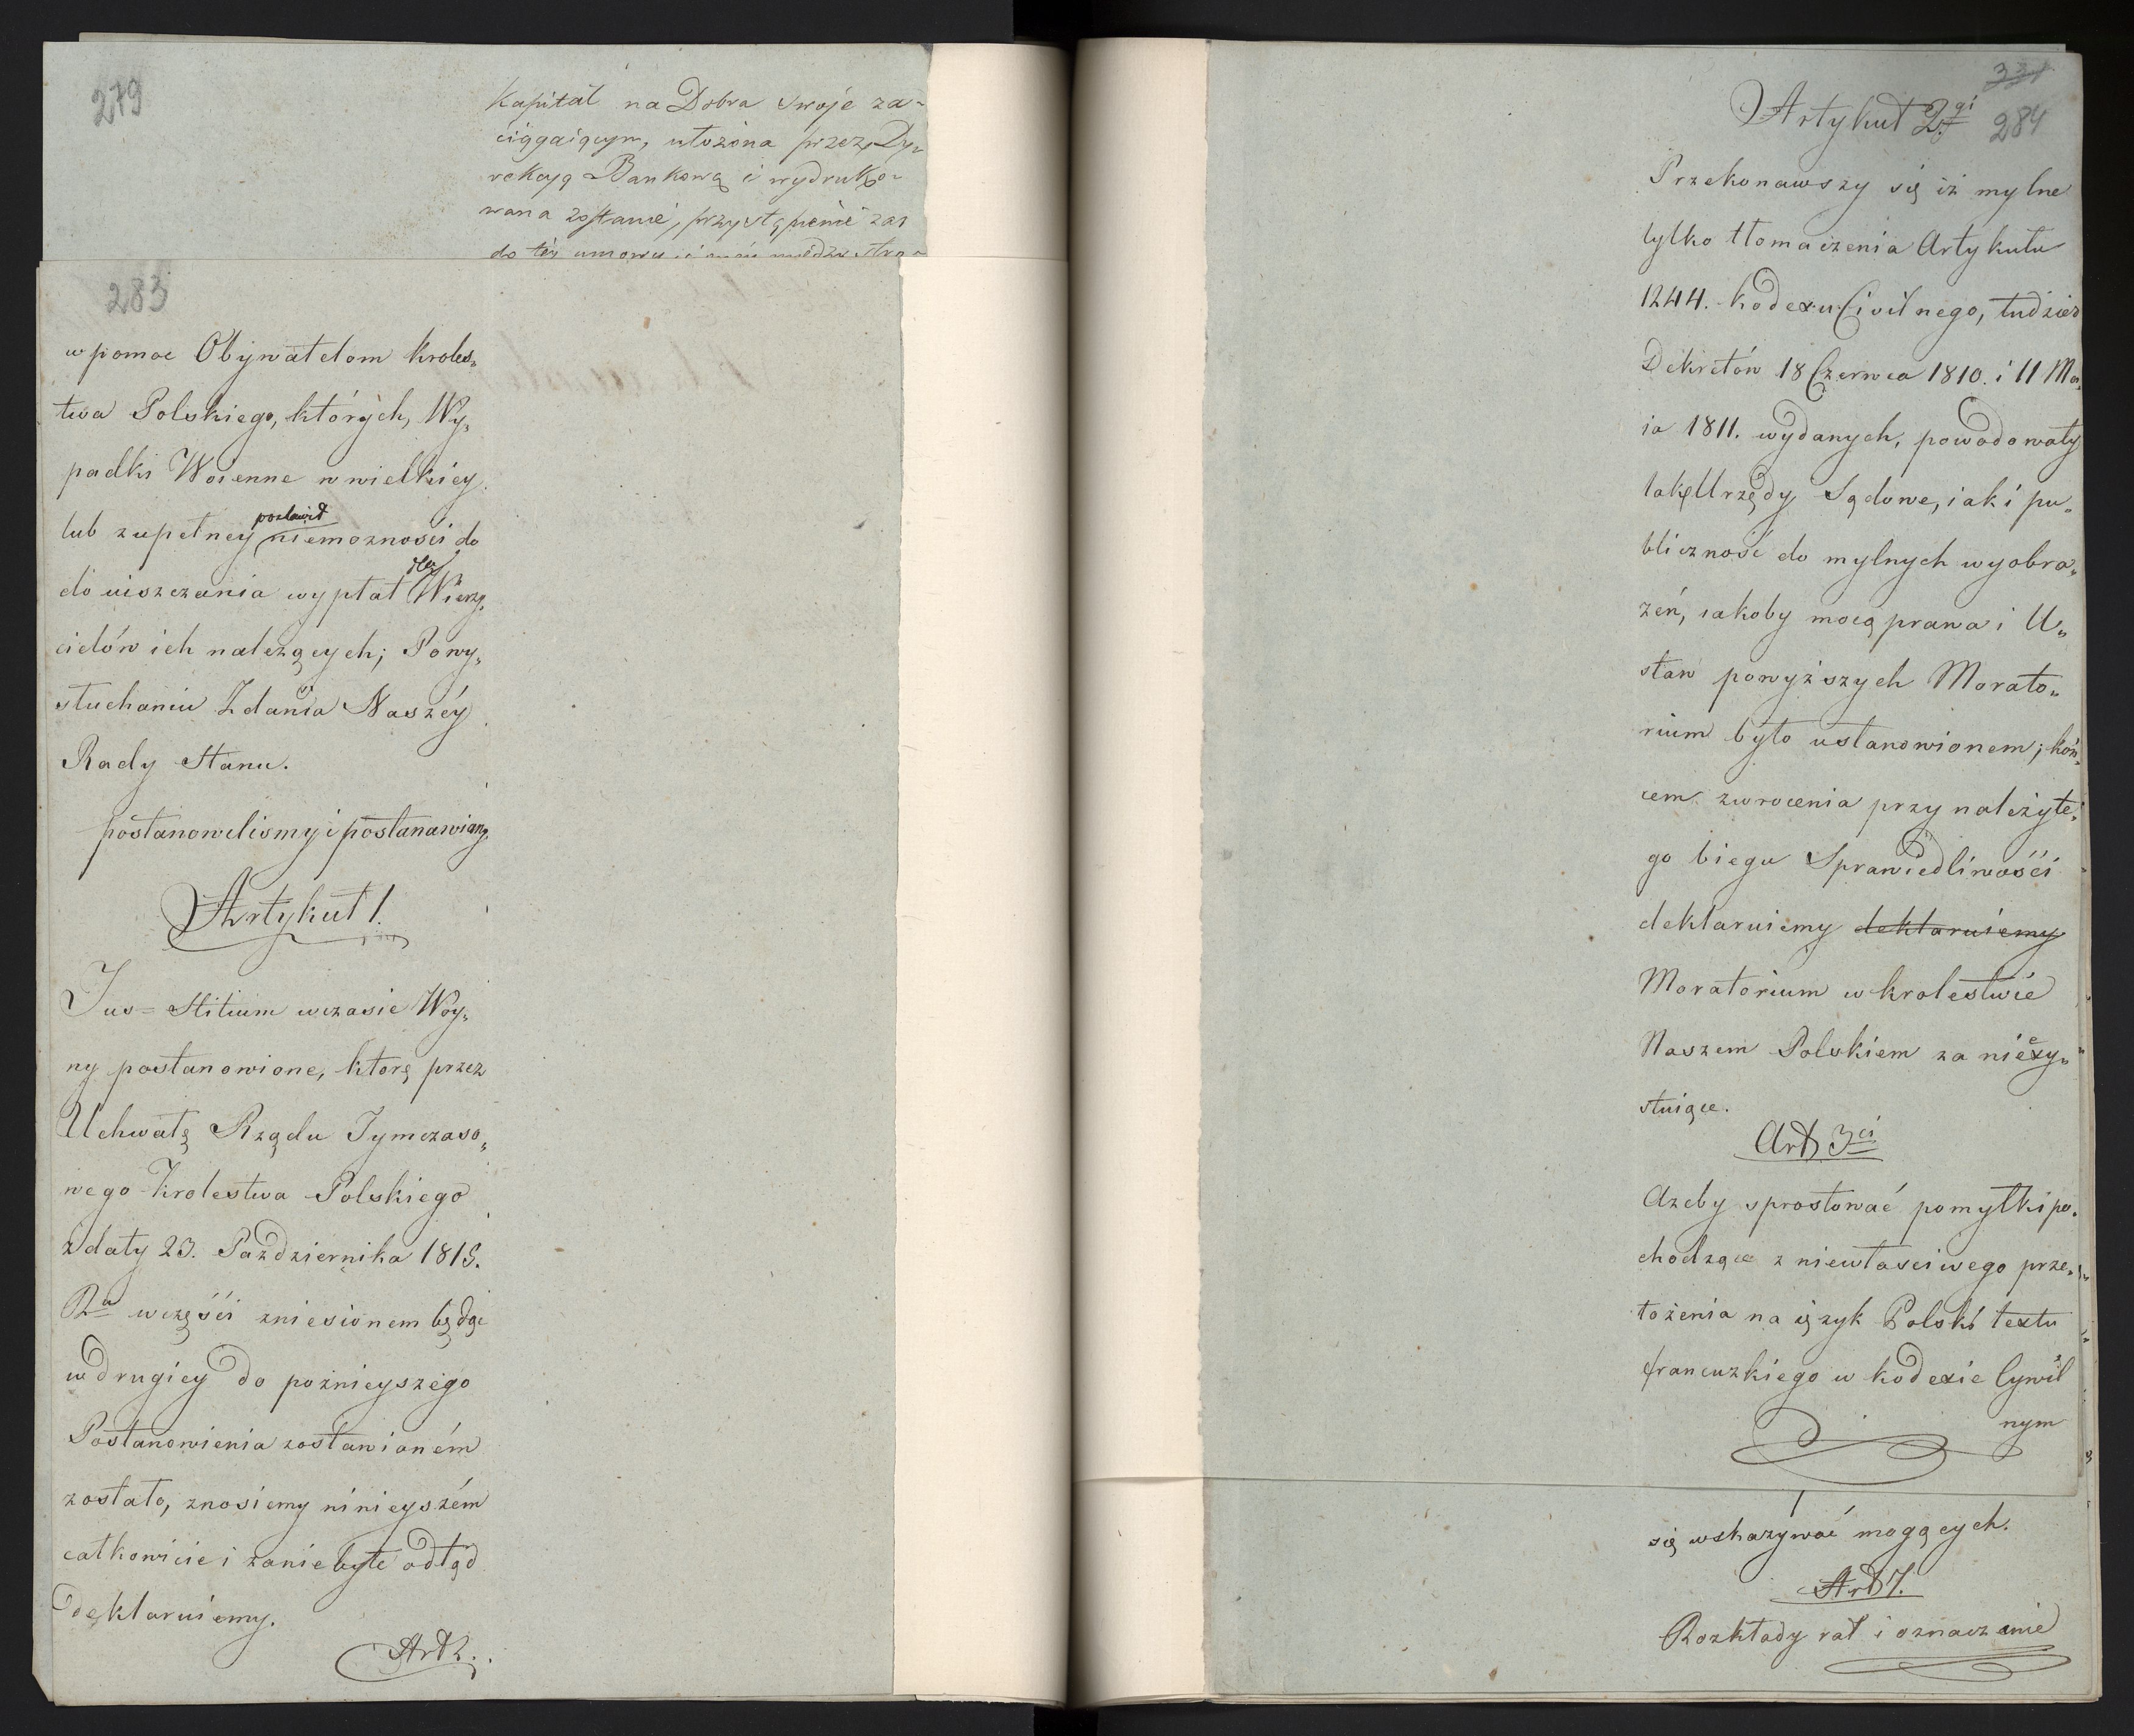 279
Kapitał na Dobra swoje za-
ciągaiącym, ułożona przez Dy-
rekcyą Bankową i wydruko-
wana zostanie, przystąpienie zas
do téy umowy
283
w pomoc Obywatelom Króles„
twa Polskiego, których, Wy„
padki Woienne w wielkiey
postawił
lub zupełney niemoznosci do
dla
do uiszczania wypłat Wierzy„
cielów ich należących; Powy„
słuchaniu Zdania Naszéy
Rady Stanu.
postanowilismy i postanawiamy
Artykuł 1.
Jus=stitium w czasie Woy„
ny postanowione, ktore przez
Uchwałę Rządu Tymczaso„
wego Krolestwa Polskiego
z daty 23. Pazdziernika 1815.
Ru w częśći zniesionem będąc
w drugiey do poźnieyszego
Postanowienia zostawioném
zostało, znosiemy ninieyszém
całkowicie i za niebyłe odtąd
deklaruiemy.
Art 2.
331
284
Artykuł 2gi
Przekonawszy się iż mylne
tylko tłomaczenia Artykułu
1244. Kodexu Civilnego, tudzież
Dekretów 18 Czerwca 1810. i 11 Ma„
ia 1811. wydanych, powodowały
tak Urzędy Sądowe, iak i pu„
bliczność do mylnych wyobra„
żeń, iakoby mocą prawa i U„
staw powyższych Morato„
rium było ustanowionem; koń„
cem zwrocenia przynależyte„
go biegu Sprawiedliwośći
deklaruiemy deklaruiemy
Moratorium w krolestwie
Naszem Polskiem za nieexy„
stuiące.
Art 3ci
Azeby sprostować pomyłki po„
chodzące z niewłasciwego prze„
łożenia na ięzyk Polski textu
francuzkiego w kodexie Cywil
nym
się wskazywać mogących.
Art 7.
Rozkłady rat i oznaczenie